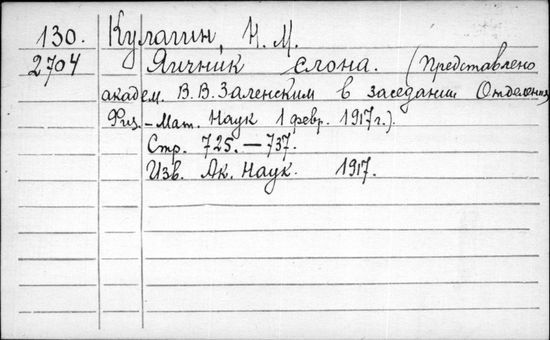 130. Кулагин, Н. М.
2704 Яичник слона. (Представлено
академ. В. В. Заленским в заседании Отделения
Физ. – Мат. Наук 1 февр. 1917 г.).
Стр. 725. – 737.
Изв. Ак. Наук. 1917.